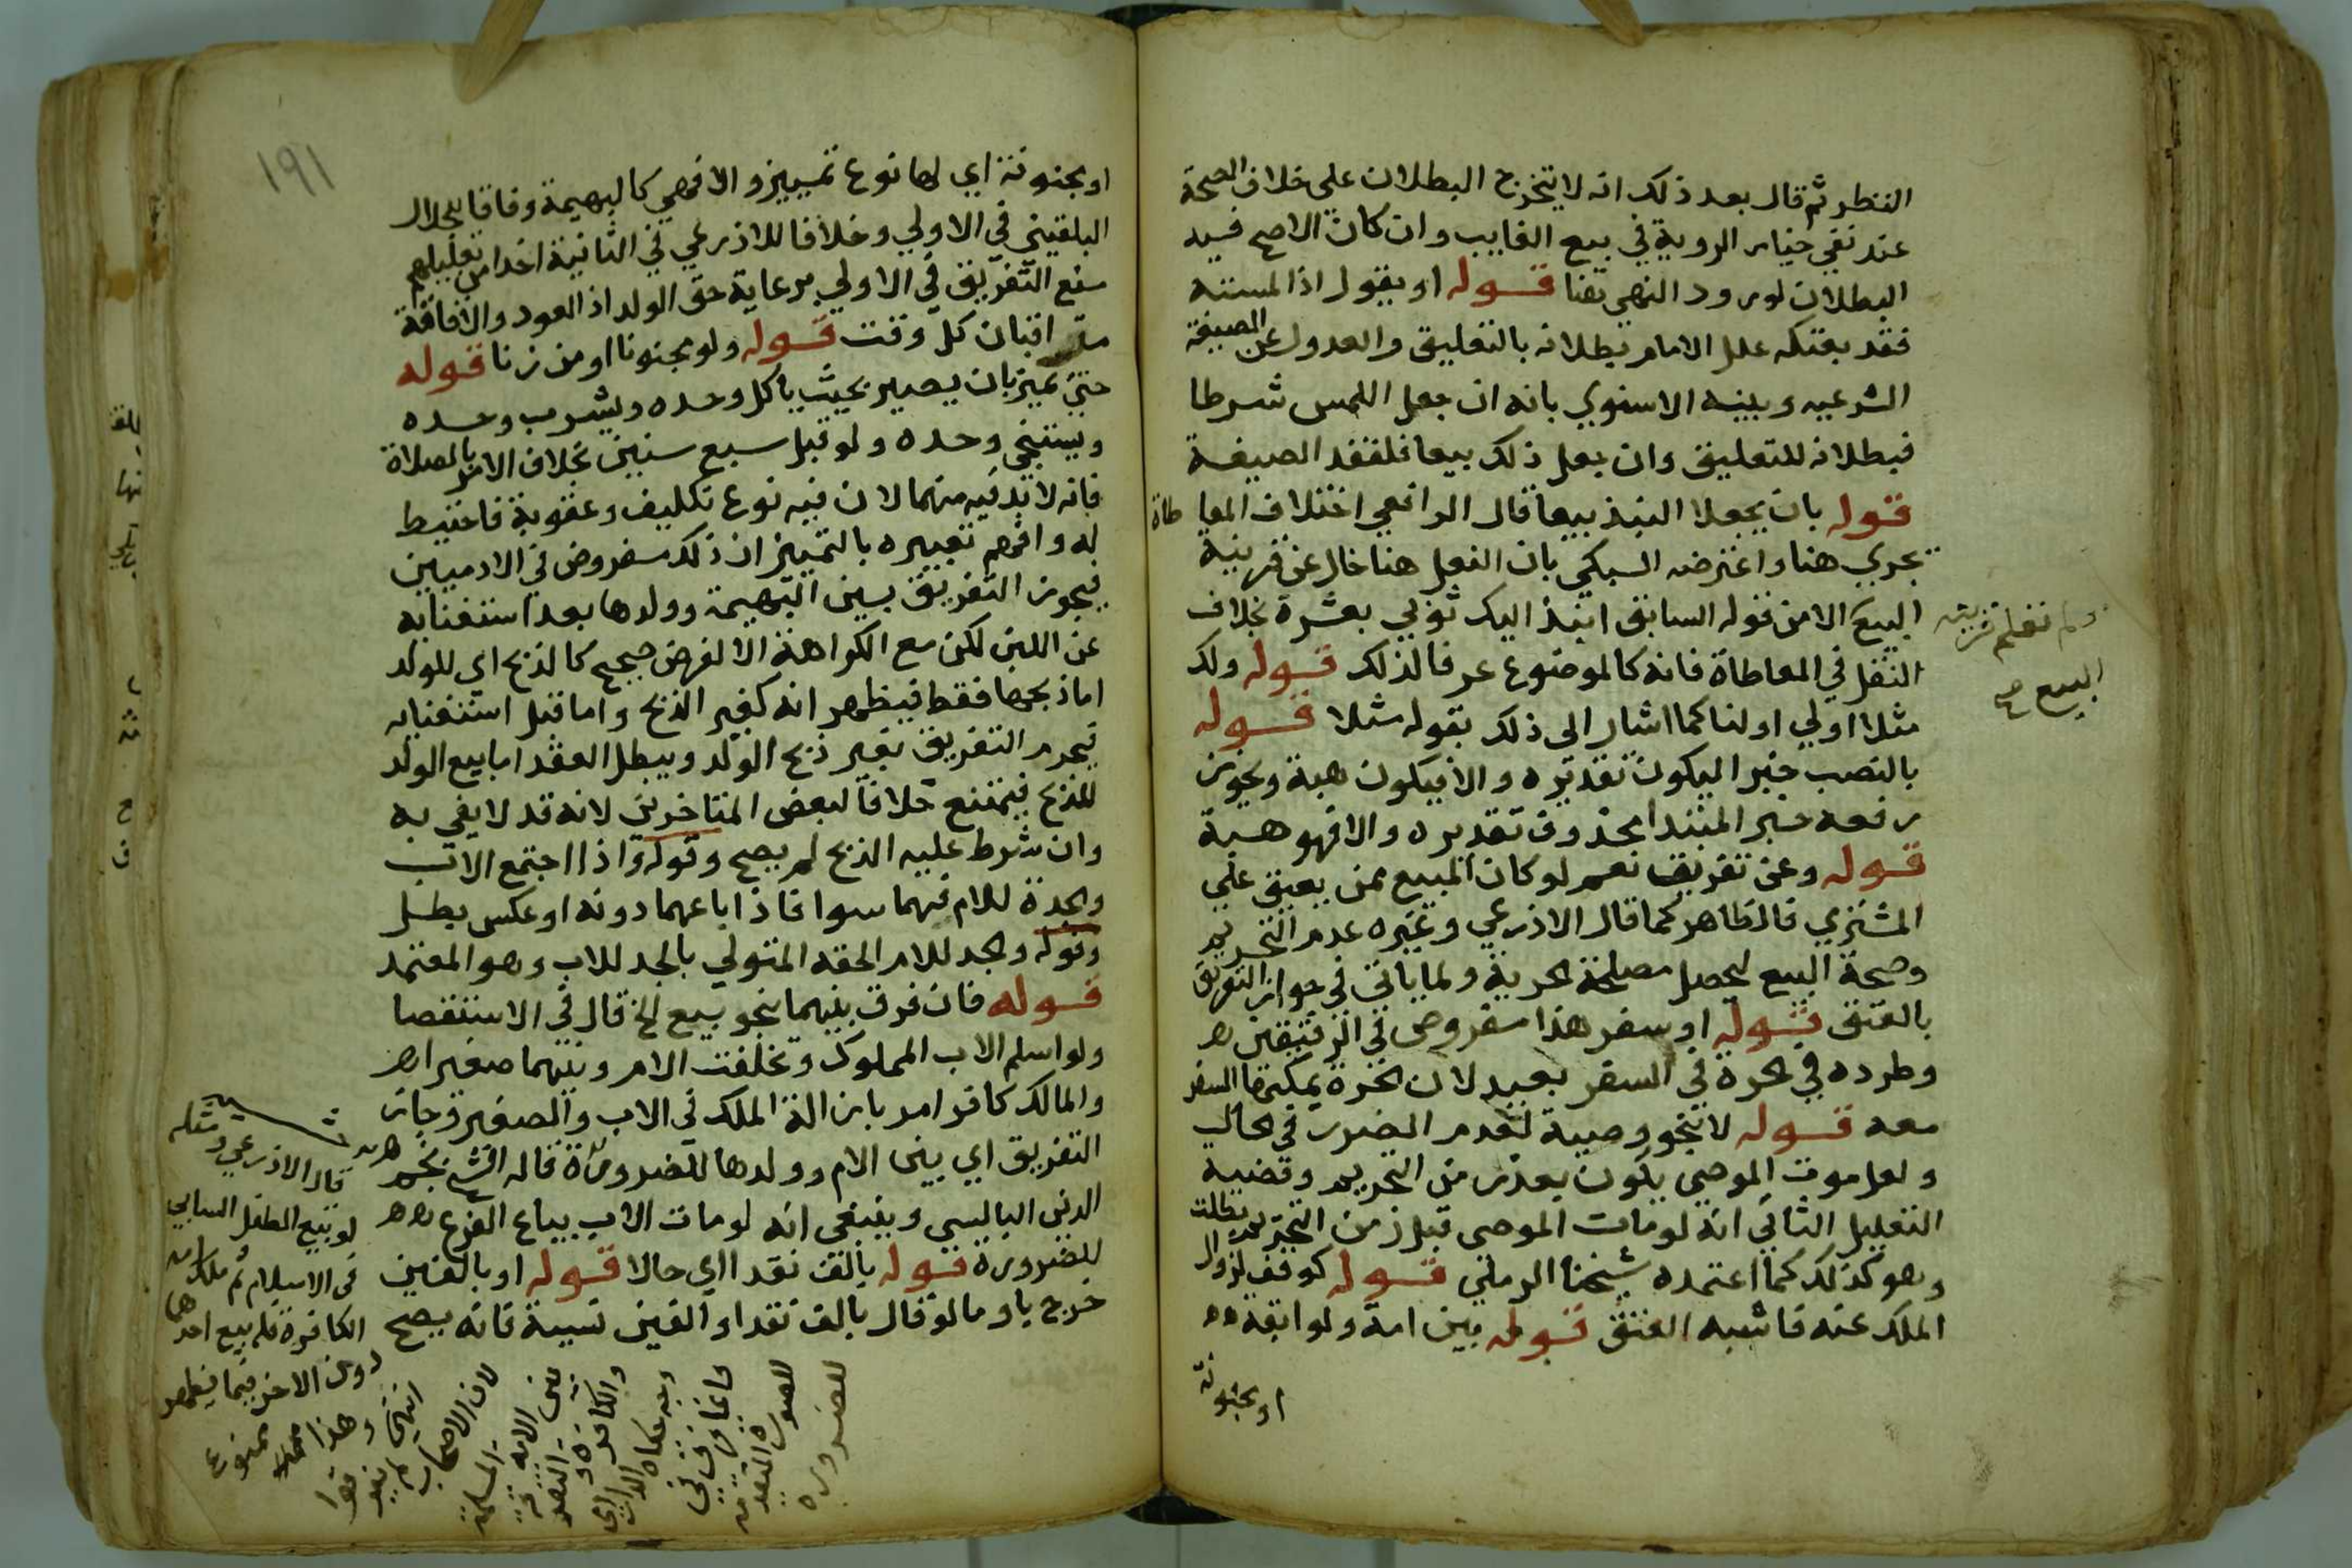 النظر ثم قال بعد ذلك انه لا يتخرج البطلان علي خلاف الصحة
عند نفي خيار الروية في بيع الغايب وان كان الاصح فيه
البطلان لورود النهي هنا قوله او يقول اذا لمسته
فقد بعتكه علل الامام بطلانه بالتعليق والعدول عن الصيغة
الشرعيه وبينه الاسنوي بانه ان جعل اللمس شرطا
فبطلانه للتعليق وان جعل ذلك بيعا فلفقد الصيغة
قوله بان يجعلا النبذ بيعا قال الرافعي اختلاف المعاطاة
يجري هنا واعترضه السبكي بان الفعل هنا خال عن قرينة
البيع الا من قوله السابق انبذ اليك ثوبي بعشرة بخلاف
النقل في المعاطاة فانه كالموضوع عرفا لذلك قوله ولك
مثلا اولي اولنا كما اشار الى ذلك بقوله مثلا قوله
بالنصب خبرا ليكون تقديره والا فيكون هبة ويجوز
رفعه خبر المبتدا محذوف تقديره والا فهو هبة
قوله وعن تفريق نعم لو كان المبيع ممن يعتق علي
المشتري فالظاهر كما قال الاذرعي وغيره عدم التحريم
وصحة البيع لتحصل مصلحة الحرية ولما ياتي في جواز التفريق
بالعتق قوله او سفر هذا مفروض في الرقيقين م ر
وطرده في الحرة في السفر بعيد لان الحرة يمكنها السفر
معه قوله لا بنحو وصية لعدم الضرر في الحال
ولعل موت الموصي يكون بعد زمن التحريم وقضية
التعليل الثاني انه لو مات الموصي قبل زمن التحريم بطلت
وهو كذلك كما اعتمده شيخنا الرملي قوله كوقف لزوال
الملك عنه فاشبه العتق قوله بين امة ولو ابقة
او مجنونة
البيع صح
١٩١
او مجنونة اي لها نوع تمييز والا فهي كالبهيمة وفاقا للجلال
البلقيني في الاولي وخلافا للاذرعي في الثانية اخذا من تعليلهم
منع التفريق في الاولي برعاية حق الولد اذ العود والافاقة
متوقعان كل وقت قوله ولو مجنونا او من زنا قوله
حتي يميز بان يصير بحيث ياكل وحده ويشرب وحده
ويستنجي وحده ولو قبل سبع سنين بخلاف الامر بالصلاة
فانه لا بد فيه منهما لان فيه نوع تكليف وعقوبة فاحتيط
له وافهم تعبيره بالتمييز ان ذلك مفروض في الادميين
فيجوز التفريق بين البهيمة وولدها بعد استغنايه
عن اللبن لكن مع الكراهة الا لغرض صحيح كالذبح اي للولد
اما ذبحها فقط فيظهر انه كغير الذبح واما قبل استغنايه
فيحرم التفريق بغير ذبح الولد ويبطل العقد اما بيع الولد
للذبح فيمتنع خلافا لبعض المتاخرين لانه قد لا يفي به
وان شرط عليه الذبح لم يصح وقوله واذا اجتمع الاب
والجدة للام فهما سوا فاذا باعهما دونه او عكس بطل
وقوله والجد للام الحقه المتولي بالجد للاب وهو المعتمد
قوله فان فرق بينهما بنحو بيع الخ قال في الاستقصا
ولو اسلم الاب المملوك وتخلفت الام وبينهما صغير امر
والمالك كافر امر بازالة الملك في الاب والصغير وجاز
التفريق اي بين الام وولدها للضرورة قاله الشيخ نجم
الدين البالسي وينبغي انه لو مات الاب بيباع الفرع م ر
للضرورة قوله بالف نقدا اي حالا قوله او بالفين
خرج باو ما لو قال بالف نقدا والفين نسية فانه يصح
قال الاذرعي ومثله
لو بيع الطفل السابي
في الاسلام ثم ملك امه
الكافرة فله بيع احدهما
دون الاخر فيما يظهر
انتهى وهذا ممنوع
لان الاصحاب لم يفرقوا
بين الامة المسلمة
والكافرة
للضرورة